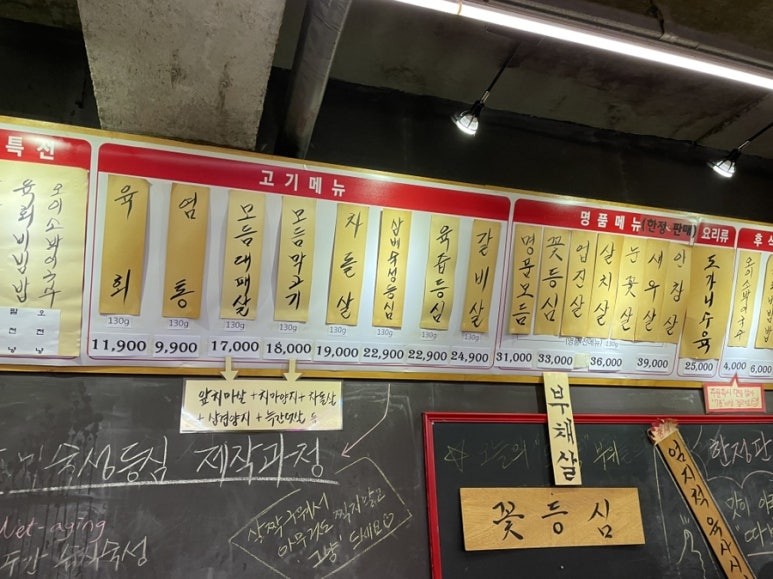 특선
육회비빔밥
고기메뉴
육회
염통
모듬대패살
모듬막고기
차돌살
삼비숙성등심
육즙등심
갈비살
130g
130g
130g
130g
130g
130g
130g
11,900
9,900
17,000
18,000
19,000
22,900
22,900
24,900
명품메뉴(한정 판매)
명문모듬
꽃등심
업진살
살치살
눈꽃살
새우살
안창살
31,000
33,000
36,000
39,000
요리류
도가니수육
25,000
후식
4,000
6,000
앞치마살+치마양지+차돌살
+삼겹양지+늑간덧살 등
숙성등심 제작과정
Wet-aging
살짝 구워서
아무것도 찍지말고
그냥 드세요♡
부채살
꽃등심
엄지척 육사시
한정판